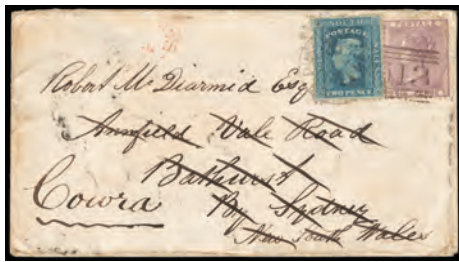 NEW SOUTH WALES
POSTAGE
POSTAGE
TWO PENCE
Robert McDiarmid Esq
Annfield Vale Road
Bathurst
Cowra
By Sydney
New South Wales